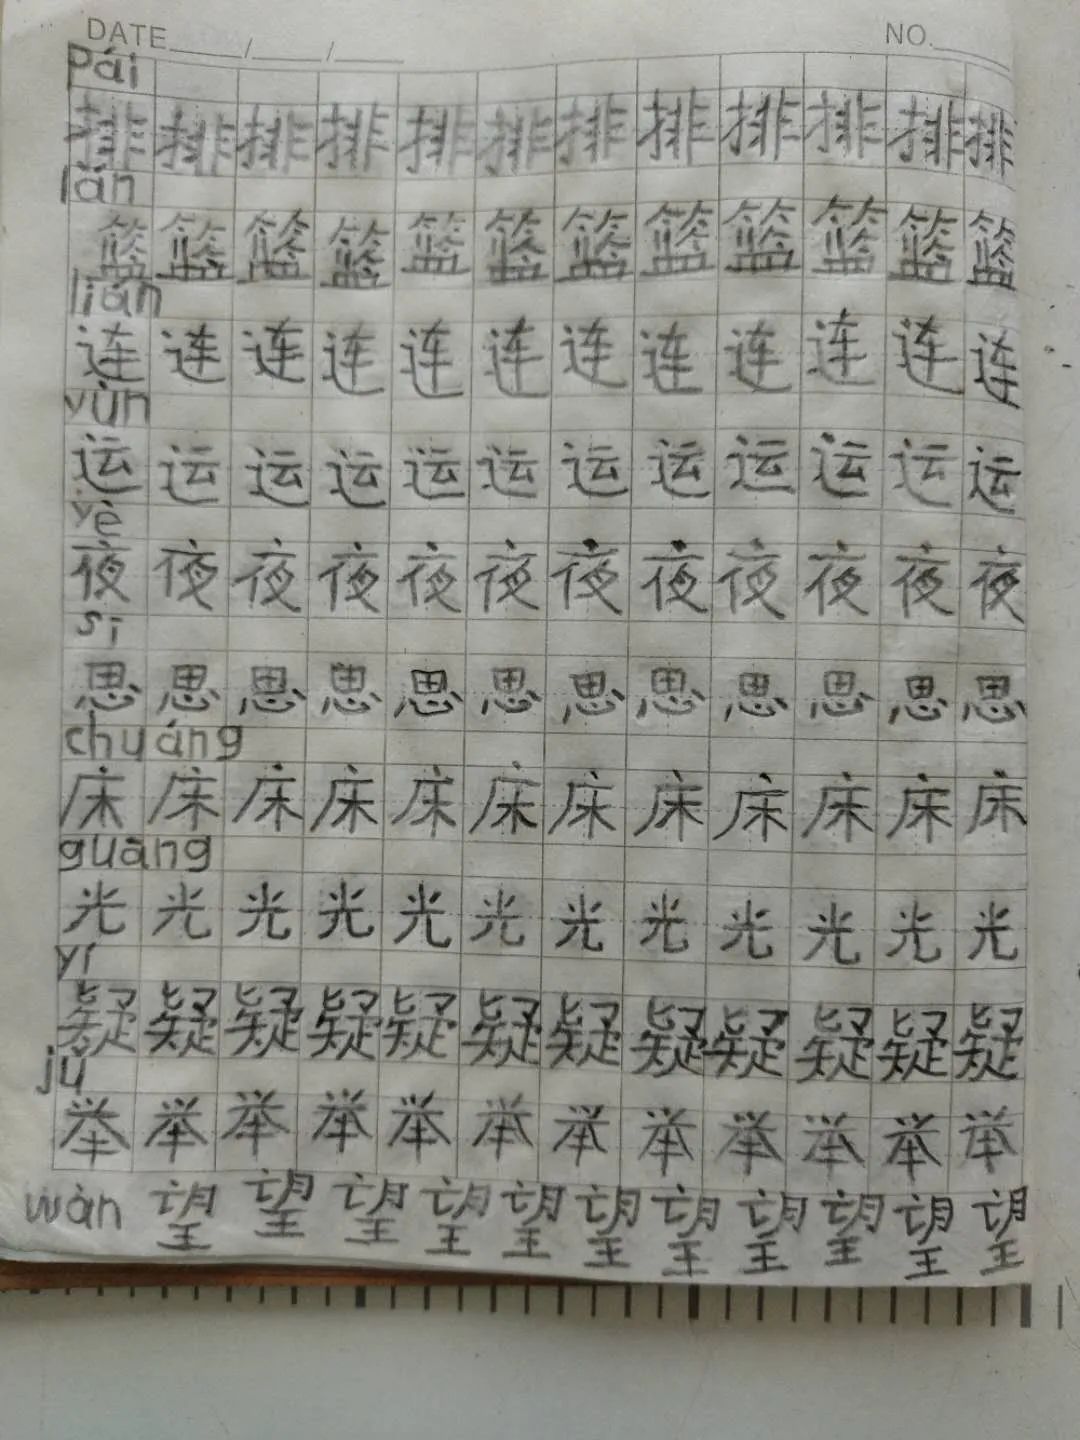 DATE / / NO.
pái
排排排排排排排排排排排排
lán
篮篮篮篮篮篮篮篮篮篮篮篮
lián
连连连连连连连连连连连连
yùn
运运运运运运运运运运运运
yè
夜夜夜夜夜夜夜夜夜夜夜夜
sī
思思思思思思思思思思思思
chuáng
床床床床床床床床床床床床
guāng
光光光光光光光光光光光光
yí
疑疑疑疑疑疑疑疑疑疑疑疑
jǔ
举举举举举举举举举举举举
wàn 望望望望望望望望望望望